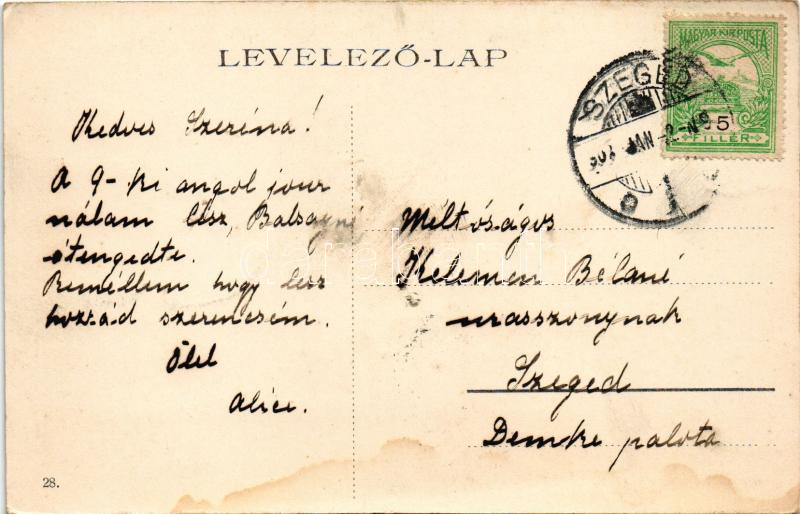 LEVELEZŐ-LAP
MAGYAR KIR. POSTA
5
FILLÉR
SZEGED
907 JAN
Kedves Szeréna!
A 9-ki angol jour
nálam lesz, Balsayné
átengedte.
Reméllem hogy lesz
hozzád szerencsém.
Ölel
Alice.
Méltóságos
Kelemen Béláné
urasszonynak
Szeged
Demke palota
28.
darabanth